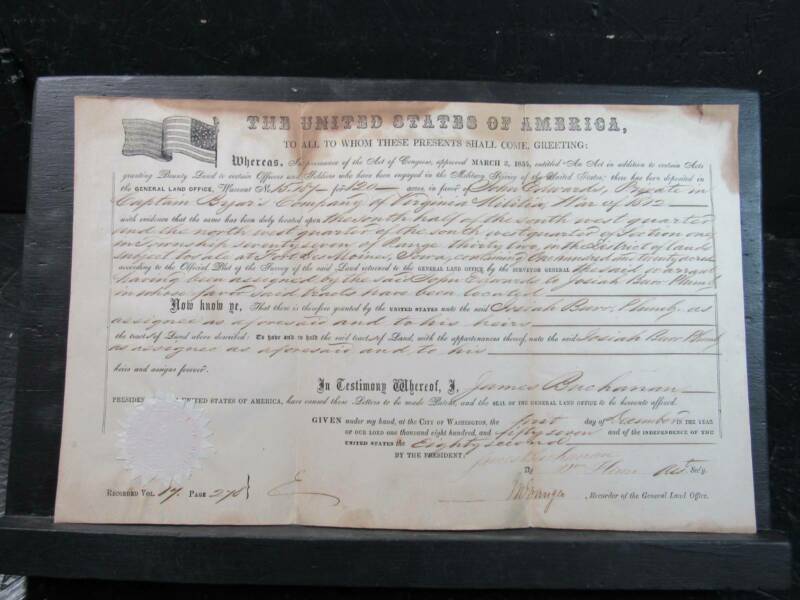 THE UNITED STATES OF AMERICA,
TO ALL TO WHOM THESE PRESENTS SHALL COME, GREETING:
Whereas, In pursuance of the Act of Congress, approved MARCH 3, 1855, entitled "An Act in addition to certain Acts
granting Bounty Land to certain Officers and Soldiers who have been engaged in the Military Service of the United States," there has been deposited in
the GENERAL LAND OFFICE, Warrant No. for 120 acres, in favor of John Edwards, Private in
Captain Byar's Company of Virginia Militia, War of 1812
with evidence that the same has been duly located upon the south half of the south west quarter
and the north west quarter of the south west quarter of Section one,
in Township seventy seven of Range thirty two, in the District of lands
subject to sale at Fort Des Moines, Iowa, containing one hundred and twenty acres
according to the Official Plat of the Survey of the said Land returned to the GENERAL LAND OFFICE by the SURVEYOR GENERAL the said warrant
having been assigned by the said John Edwards to Josiah Burr Plumb
in whose favor said tracts have been located
Now know ye, That there is therefore granted by the UNITED STATES unto the said Josiah Burr Plumb, as
assignee as aforesaid and to his heirs
the tract of Land above described: To have and to hold the said tract of Land, with the appurtenances thereof, unto the said Josiah Burr Plumb
as assignee as aforesaid and to his
heirs and assigns forever.
In Testimony Whereof, I, James Buchanan
PRESIDENT UNITED STATES OF AMERICA, have caused these Letters to be made Patent, and the SEAL OF THE GENERAL LAND OFFICE to be hereunto affixed.
GIVEN under my hand, at the CITY OF WASHINGTON, the first day of December IN THE YEAR
OF OUR LORD one thousand eight hundred, and fifty seven and of the INDEPENDENCE OF THE
UNITED STATES the Eighty second
BY THE PRESIDENT: James Buchanan
By Sec'y.
RECORDED VOL. 17, PAGE 278 , Recorder of the General Land Office.